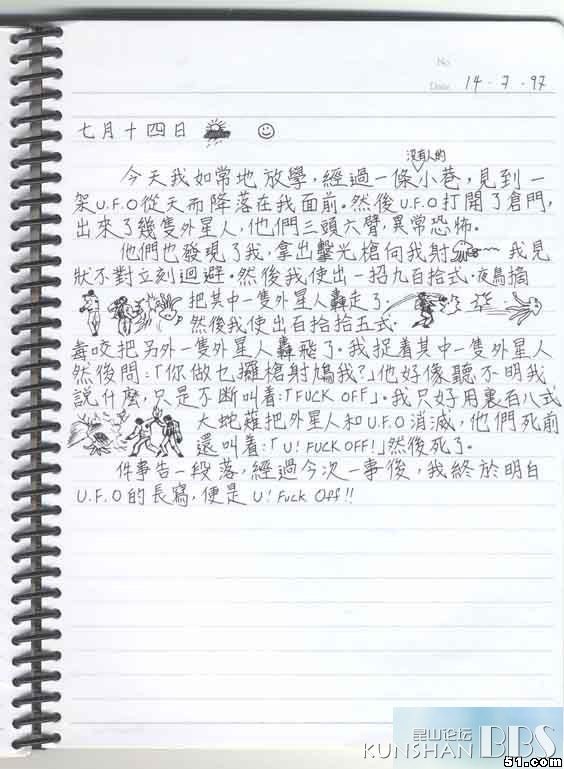 No.
Date 14·7·97
七月十四日
沒有人的
今天我如常地放學，經過一條小巷，見到一
架U.F.O從天而降落在我面前。然後U.F.O打開了倉門，
出來了幾隻外星人，他們三頭六臂，異常恐怖。
他們也發現了我，拿出擊光槍向我射 我見
狀不對立刻迴避。然後我使出一招九百拾式·夜鳥摘
把其中一隻外星人轟走了。
然後我使出百拾拾五式·
毒咬把另外一隻外星人轟飛了。我捉着其中一隻外星人
然後問：「你做乜攞槍射鳩我？」他好像聽不明我
說什麼，只是不斷叫着：「FUCK OFF」。我只好用裏百八式
大蛇薙把外星人和U.F.O消滅，他們死前
還叫着：「U! FUCK OFF!」然後死了。
件事告一段落，經過今次一事後，我終於明白
U.F.O的長寫，便是U! Fuck Off!!
昆山论坛
KUNSHAN BBS
51.com